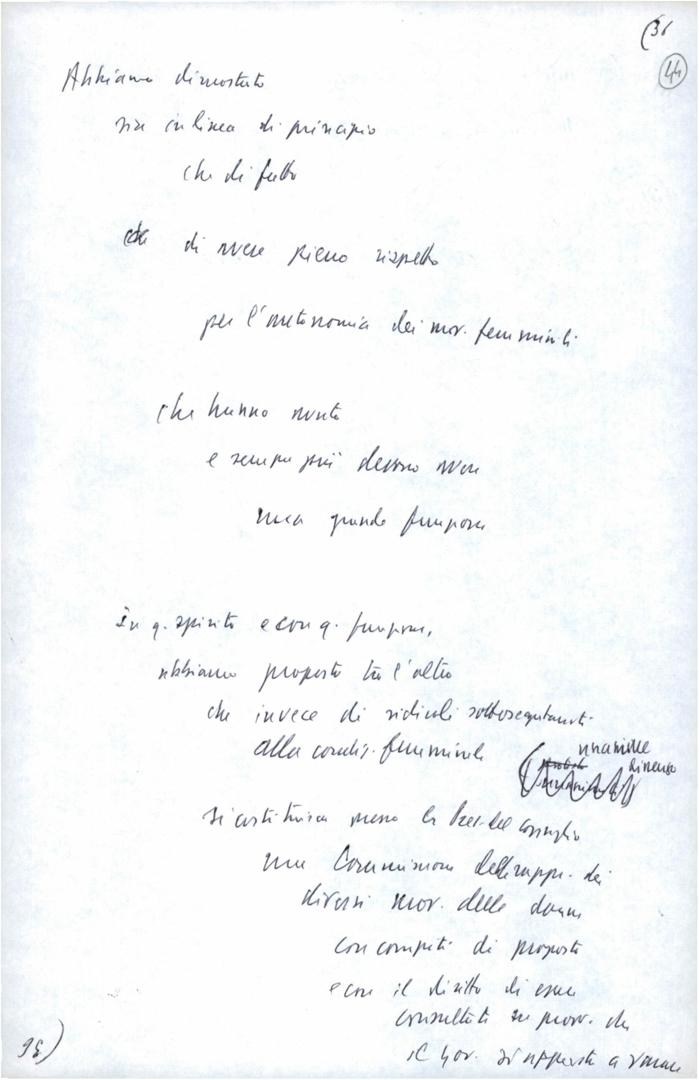 (36
44
Abbiamo dimostrato
sia in linea di principio
che di fatto
di avere pieno rispetto
per l'autonomia dei mov. femminili
che hanno avuto
e sempre più devono avere
una grande funzione
In q. spirito e con q. funzione,
abbiamo proposto tra l'altro
che invece di ridicoli sottosegretariati
alla condiz. femminile
unanime
dissenso
si costituisca presso la Pres. del Consiglio
una Commissione delle rappr. dei
diversi mov. delle donne
con compiti di proposta
e con il diritto di essere
consultati su provv. che
il Gov. si appresta a varare
36)